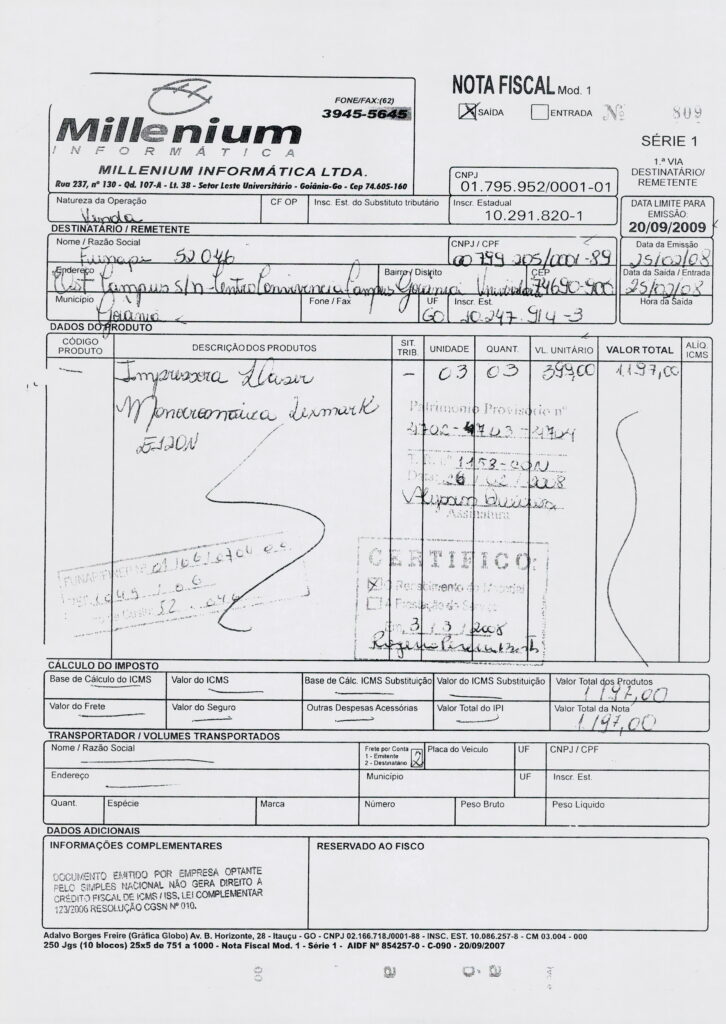 NOTA FISCAL Mod. 1
FONE/FAX:(62)
3945-5645
X SAÍDA ENTRADA Nº 809
Millenium
INFORMÁTICA
SÉRIE 1
MILLENIUM INFORMÁTICA LTDA.
Rua 237, nº 130 - Qd. 107-A - Lt. 38 - Setor Leste Universitário - Goiânia-Go - Cep 74.605-160
1.ª VIA
DESTINATÁRIO/
REMETENTE
CNPJ
01.795.952/0001-01
Natureza da Operação
Venda
CF OP
Insc. Est. do Substituto tributário
Insc. Estadual
10.291.820-1
DATA LIMITE PARA
EMISSÃO:
20/09/2009
DESTINATÁRIO / REMETENTE
Nome / Razão Social
Funape 52046
CNPJ / CPF
00799 205/0001-89
Data da Emissão
25/02/08
Endereço
Campus s/n - Centro Convivencia Campus
Bairro / Distrito
Goiânia
CEP
74690-900
Data da Saída / Entrada
25/02/08
Município
Goiânia
Fone / Fax
UF
GO
Inscr. Est.
10.247.914-3
Hora da Saída
DADOS DO PRODUTO
CÓDIGO PRODUTO DESCRIÇÃO DOS PRODUTOS SIT. TRIB. UNIDADE QUANT. VL. UNITÁRIO VALOR TOTAL ALÍQ. ICMS
— Impressora Laser — 03 03 399,00 1.197,00
Monocromática Lexmark
E120N
Patrimonio Provisório nº
4702-4703-4704
1153-CON
26/02/2008
Assinatura
CERTIFICO:
X O Recebimento do Material
A Prestação do Serviço
Em, 3/3/2008
52.046
CÁLCULO DO IMPOSTO
Base de Cálculo do ICMS
Valor do ICMS
Base de Cálc. ICMS Substituição
Valor do ICMS Substituição
Valor Total dos Produtos
1.197,00
Valor do Frete
Valor do Seguro
Outras Despesas Acessórias
Valor Total do IPI
Valor Total da Nota
1.197,00
TRANSPORTADOR / VOLUMES TRANSPORTADOS
Nome / Razão Social
Frete por Conta
1 - Emitente
2 - Destinatário
2
Placa do Veículo
UF
CNPJ / CPF
Endereço
Município
UF
Inscr. Est.
Quant. Espécie Marca Número Peso Bruto Peso Líquido
DADOS ADICIONAIS
INFORMAÇÕES COMPLEMENTARES
RESERVADO AO FISCO
DOCUMENTO EMITIDO POR EMPRESA OPTANTE
PELO SIMPLES NACIONAL NÃO GERA DIREITO A
CRÉDITO FISCAL DE ICMS / ISS, LEI COMPLEMENTAR
123/2006 RESOLUÇÃO CGSN Nº 010.
Adalvo Borges Freire (Gráfica Globo) Av. B. Horizonte, 28 - Itauçu - GO - CNPJ 02.166.718./0001-88 - INSC. EST. 10.086.257-8 - CM 03.004 - 000
250 Jgs (10 blocos) 25x5 de 751 a 1000 - Nota Fiscal Mod. 1 - Série 1 - AIDF Nº 854257-0 - C-090 - 20/09/2007